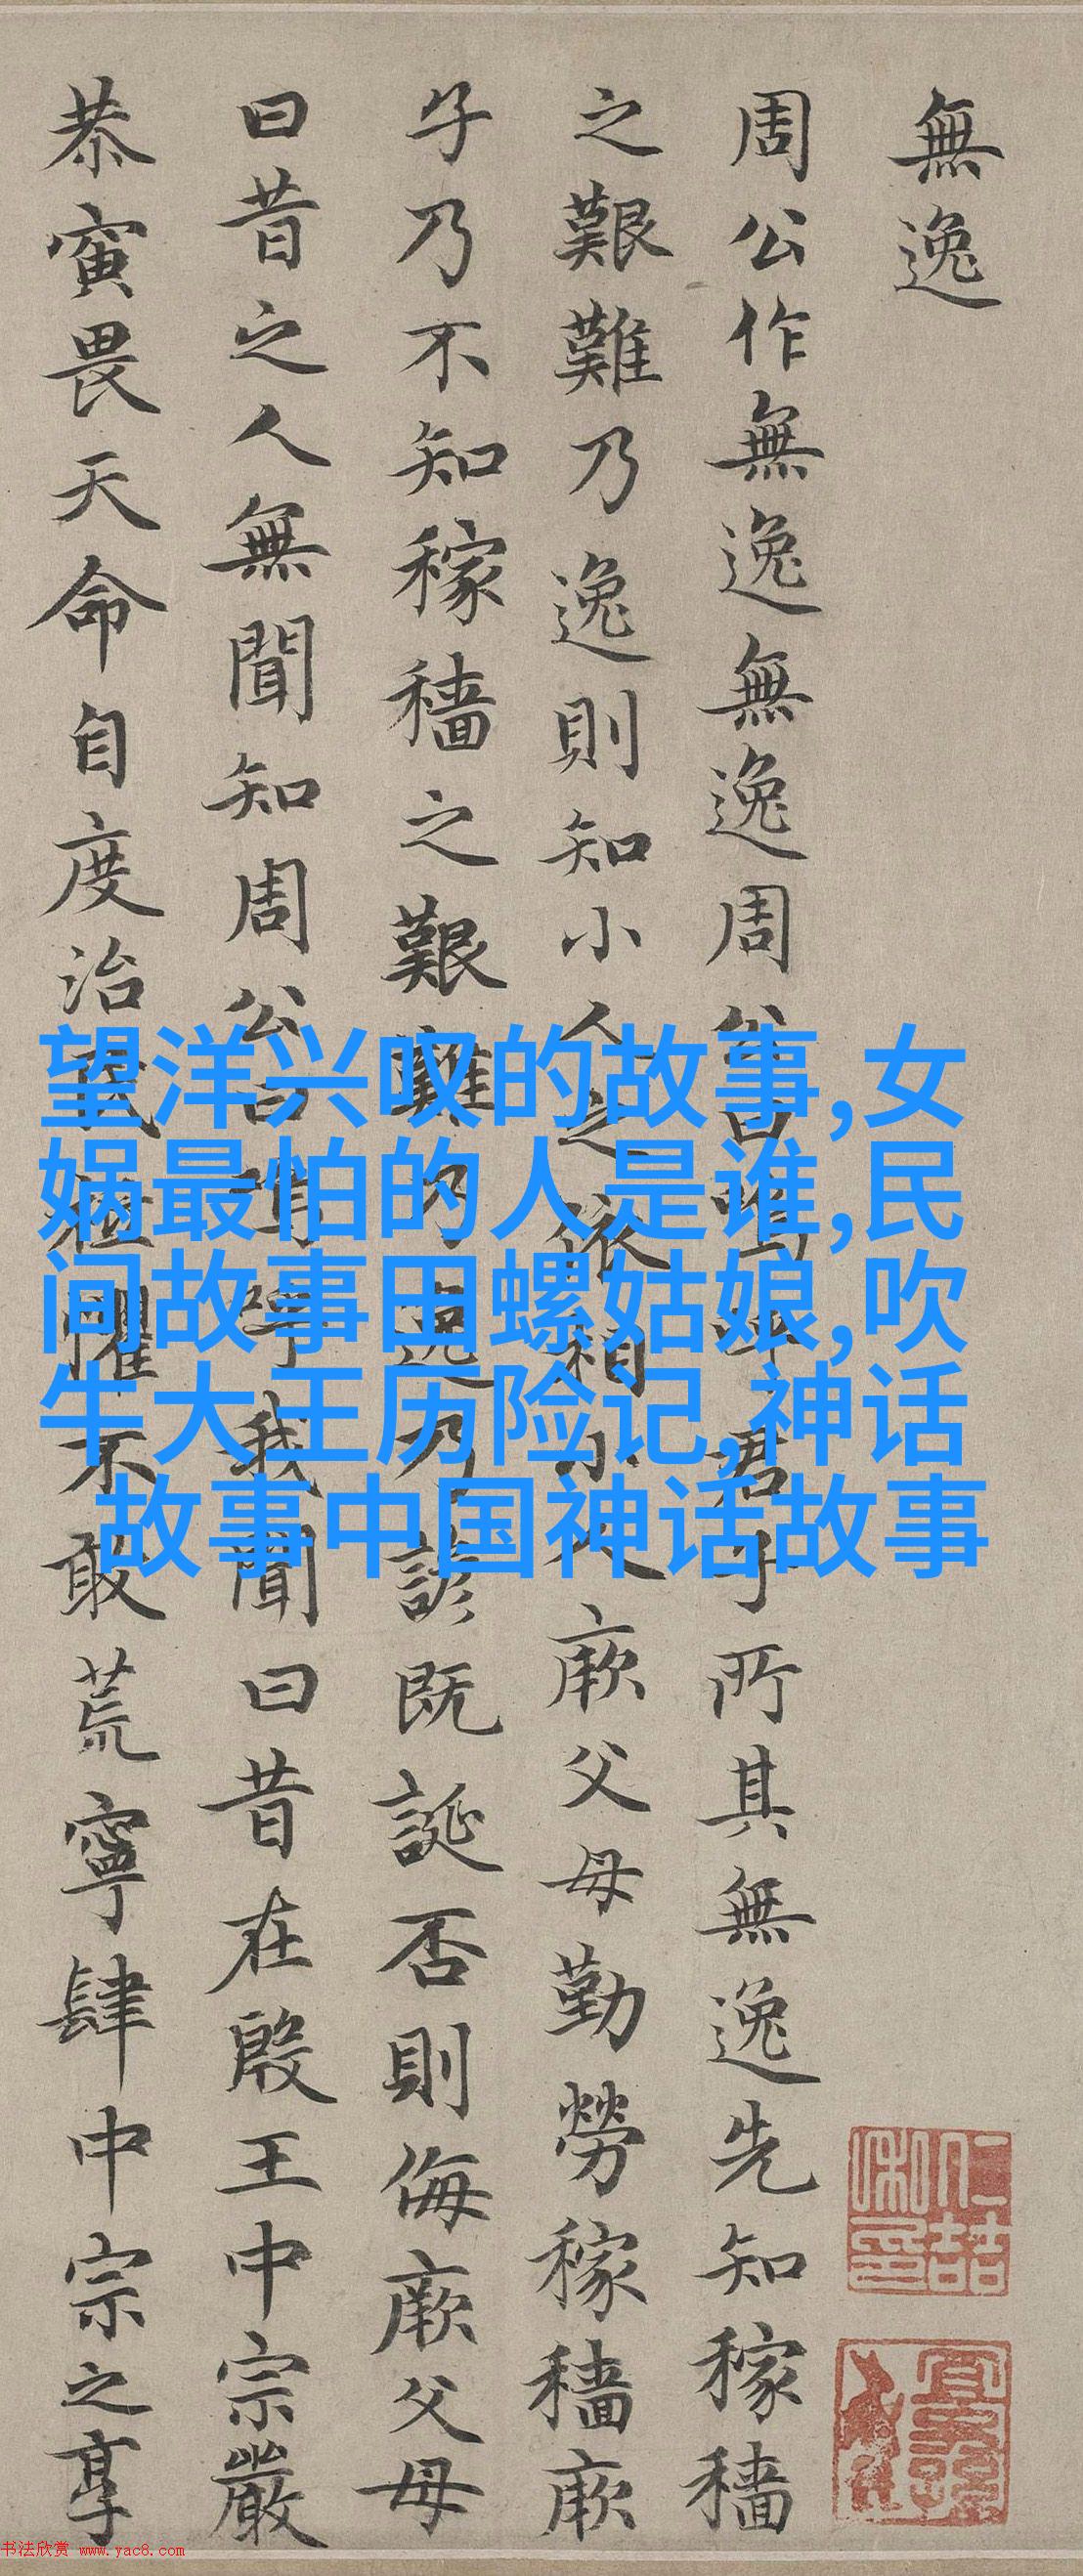 無逸
周公作無逸無逸周公曰嗚呼君子所其無逸先知稼穡
之艱難乃逸則知小人之依相小人厥父母勤勞稼穡厥
子乃不知稼穡之艱難乃逸乃諺既誕否則侮厥父母
曰昔之人無聞知周公曰嗚呼我聞曰昔在殷王中宗嚴
恭寅畏天命自度治民祗懼不敢荒寧肆中宗之享
望洋兴叹的故事,女
娲最怕的人是谁,民
间故事田螺姑娘,吹
牛大王历险记,神话
故事中国神话故事
书法欣赏 www.yac8.com